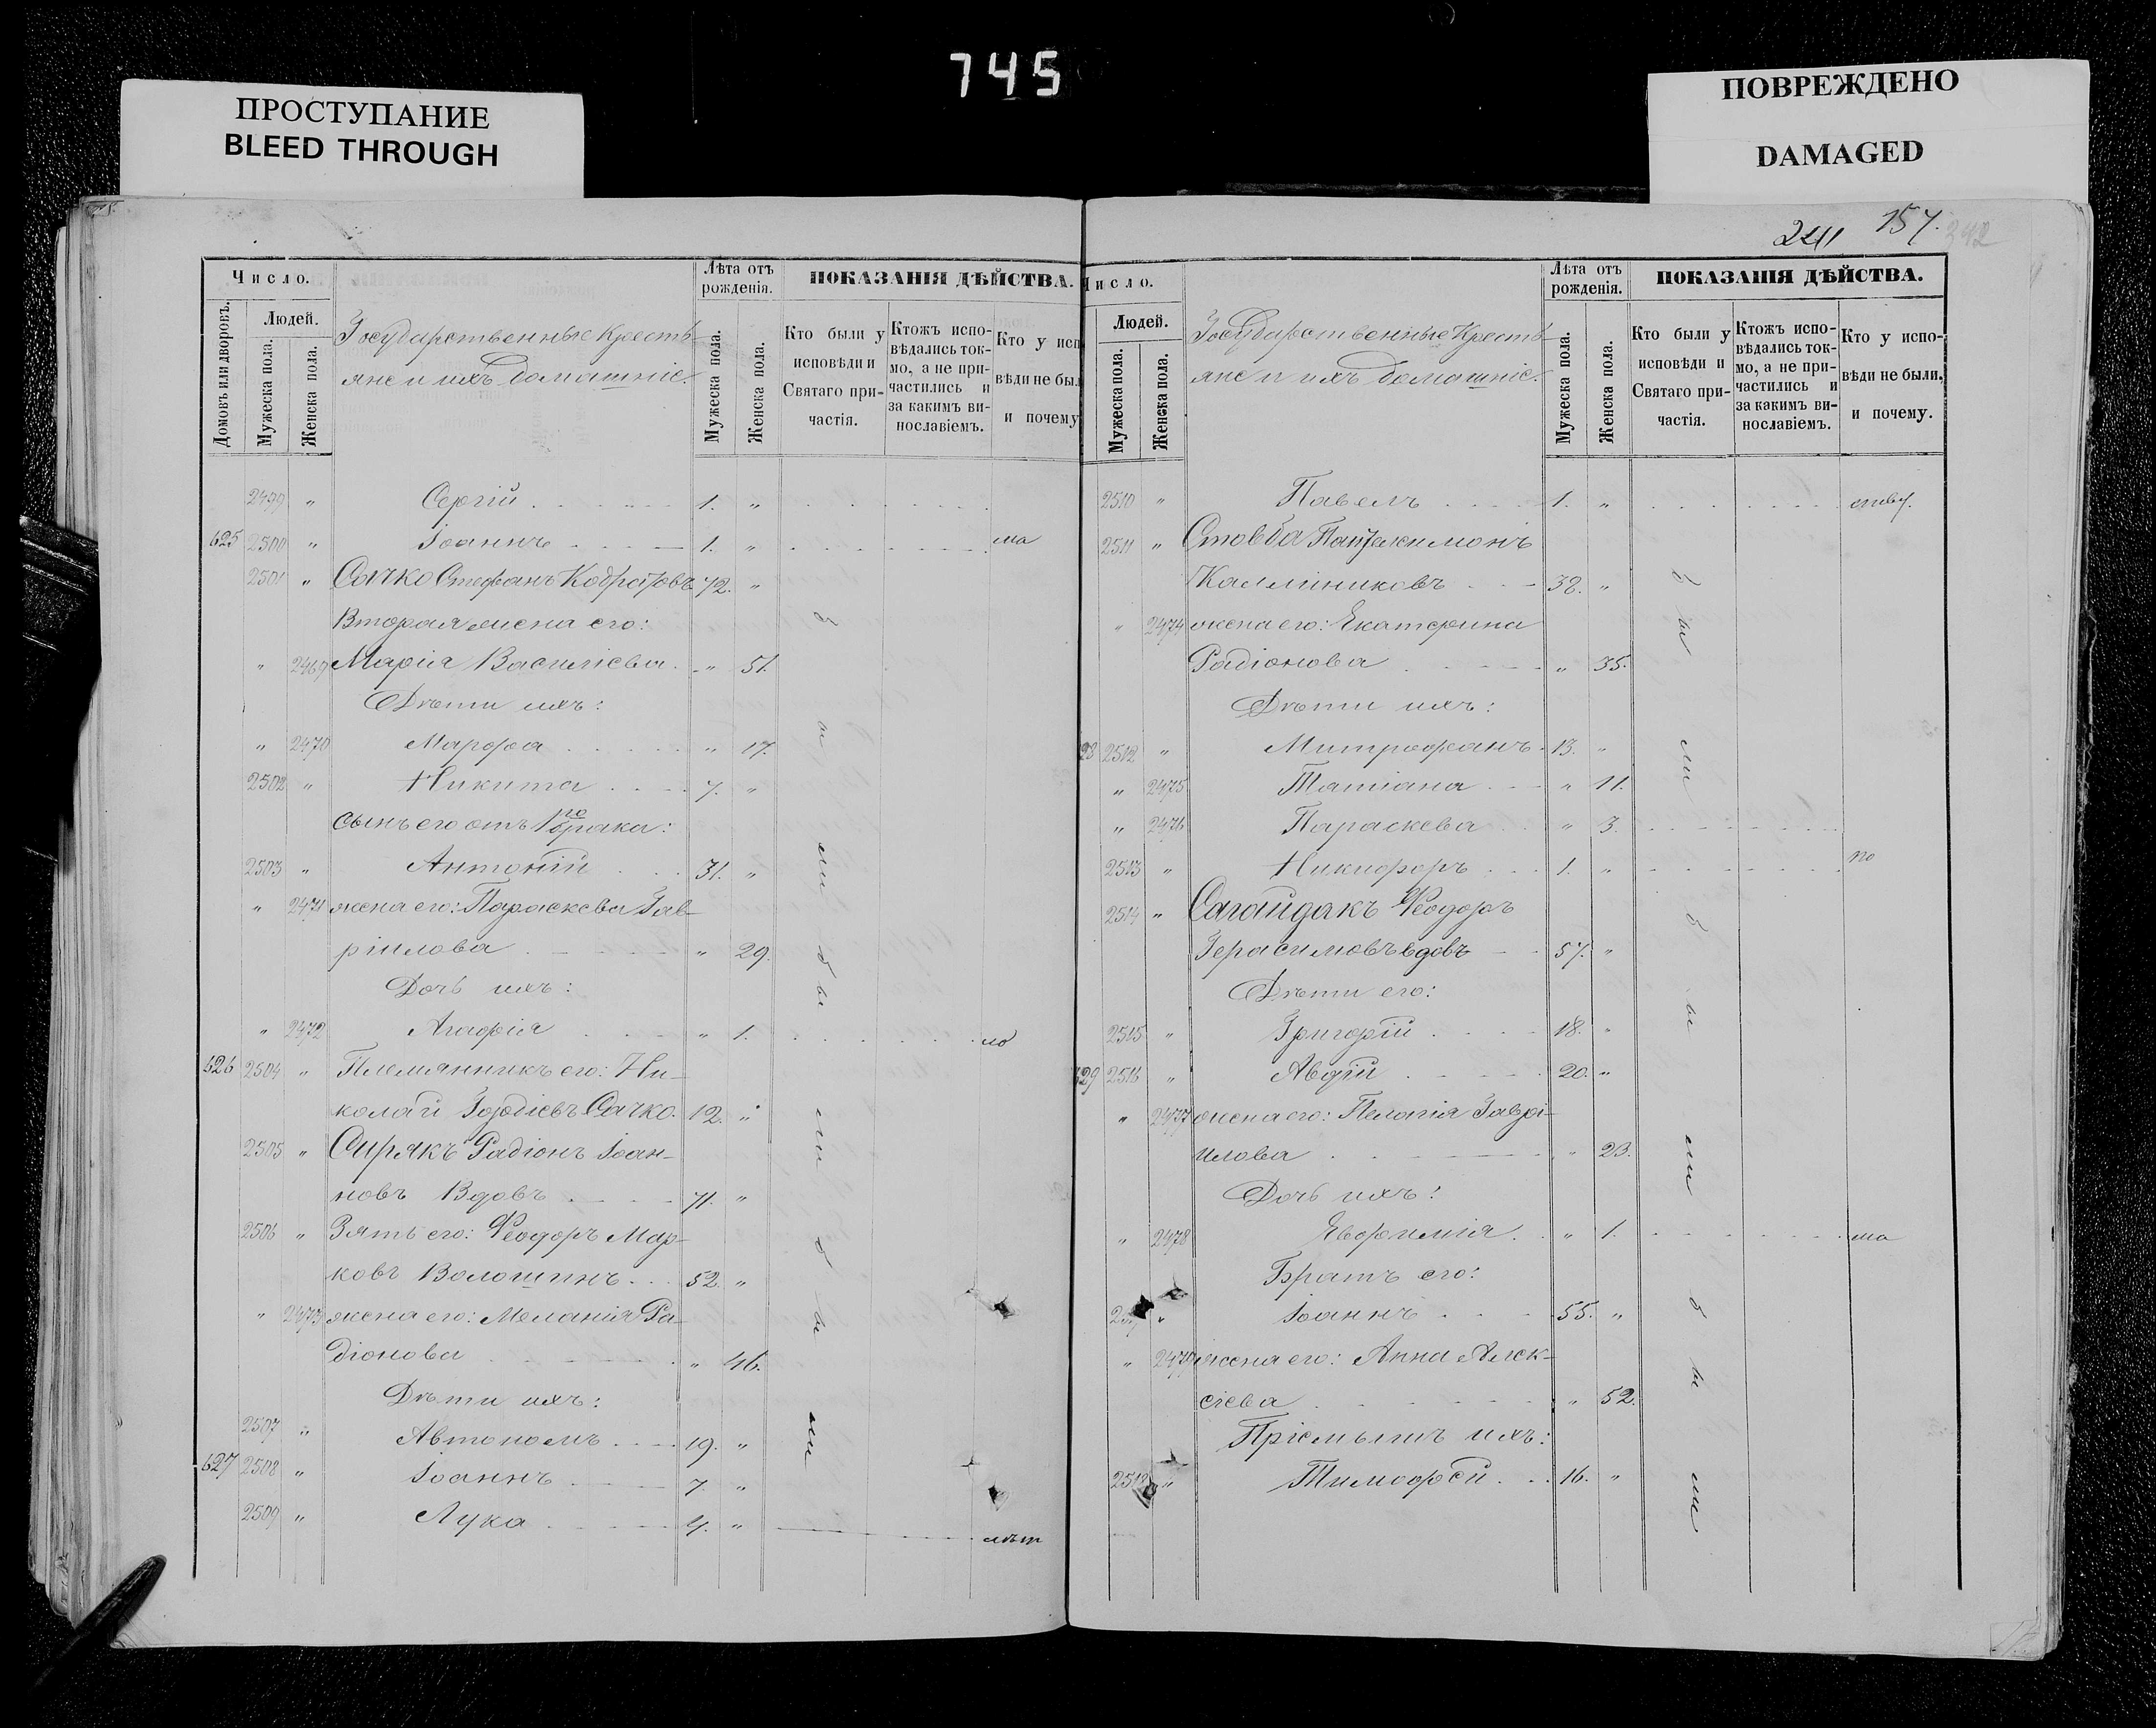 745
ПРОСТУПАНИЕ
BLEED THROUGH
ПОВРЕЖДЕНО
DAMAGED
241 157. 342
Число.
Домовъ или дворовъ.
Людей.
Мужеска пола.
Женска пола.
Государственные Кресть-
яне и ихъ домашніе.
Лѣта отъ рожденія.
Мужеска пола.
Женска пола.
ПОКАЗАНІЯ ДѢЙСТВА.
Кто были у исповѣди и Святаго при-частія.
Ктожъ испо-вѣдались ток-мо, а не при-частились и за какимъ ви-нославіемъ.
Кто у исп
вѣди не был
и почему
2499 " Сергій 1. "
625 2500 " Іоаннъ 1. " ма
2501 " Сачко Стефанъ Кодратовъ 72. "
Вторая жена его:
" 2469 Марія Василіева " 51.
Дѣти ихъ:
" 2470 Марфа " 17.
2502 " Никита 7. "
сынъ его отъ 1го брака:
2503 " Антоній 31. "
" 2471 жена его: Параскева Гав-
ріилова " 29.
Дочь ихъ:
" 2472 Агафія " 1. ло
626 2504 " Племянникъ его: Ни-
колай Гордіевъ Сачко. 12. "
2505 " Сирякъ Радіонъ Іоан-
новъ Вдовъ 71. "
2506 " Зять его: Феодоръ Мар-
ковъ Волошинъ 52. "
" 2473 жена его: Меланія Ра-
діонова " 46.
Дѣти ихъ:
2507 " Автономъ 19. "
627 2508 " Іоаннъ 7. "
2509 " Лука 4. " лѣт
бы
ли
бы
ли
бы
ли
Число.
Людей.
Мужеска пола.
Женска пола.
Государственные Кресть-
яне и ихъ домашніе.
Лѣта отъ рожденія.
Мужеска пола.
Женска пола.
ПОКАЗАНІЯ ДѢЙСТВА.
Кто были у исповѣди и Святаго при-частія.
Ктожъ испо-вѣдались ток-мо, а не при-частились и за какимъ ви-нославіемъ.
Кто у испо-вѣди не были, и почему.
2510 " Павелъ 1. "
2511 " Стовба Пантелеимонъ
Каллиниковъ 38. "
" 2474 жена его: Екатерина
Радіонова " 35.
Дѣти ихъ:
28 2512 " Митрофанъ 13. "
" 2475 Татіана " 11.
" 2476 Параскева " 3.
2513 " Никифоръ 1. " по
2514 " Сагайдакъ Феодоръ
Герасимовъ вдовъ 57. "
Дѣти его:
2515 " Григорій 18. "
629 2516 " Авдій 20. "
" 2477 жена его: Пелагія Гаврі-
илова " 23.
Дочь ихъ:
" 2478 Евфимія " 1. ма
Братъ его:
" Іоаннъ 55. "
" 2479 жена его: Анна Алек-
сіева " 52.
Пріемышъ ихъ:
2518 " Тимофей 16. "
бы
ли
бы
ли
бы
ли